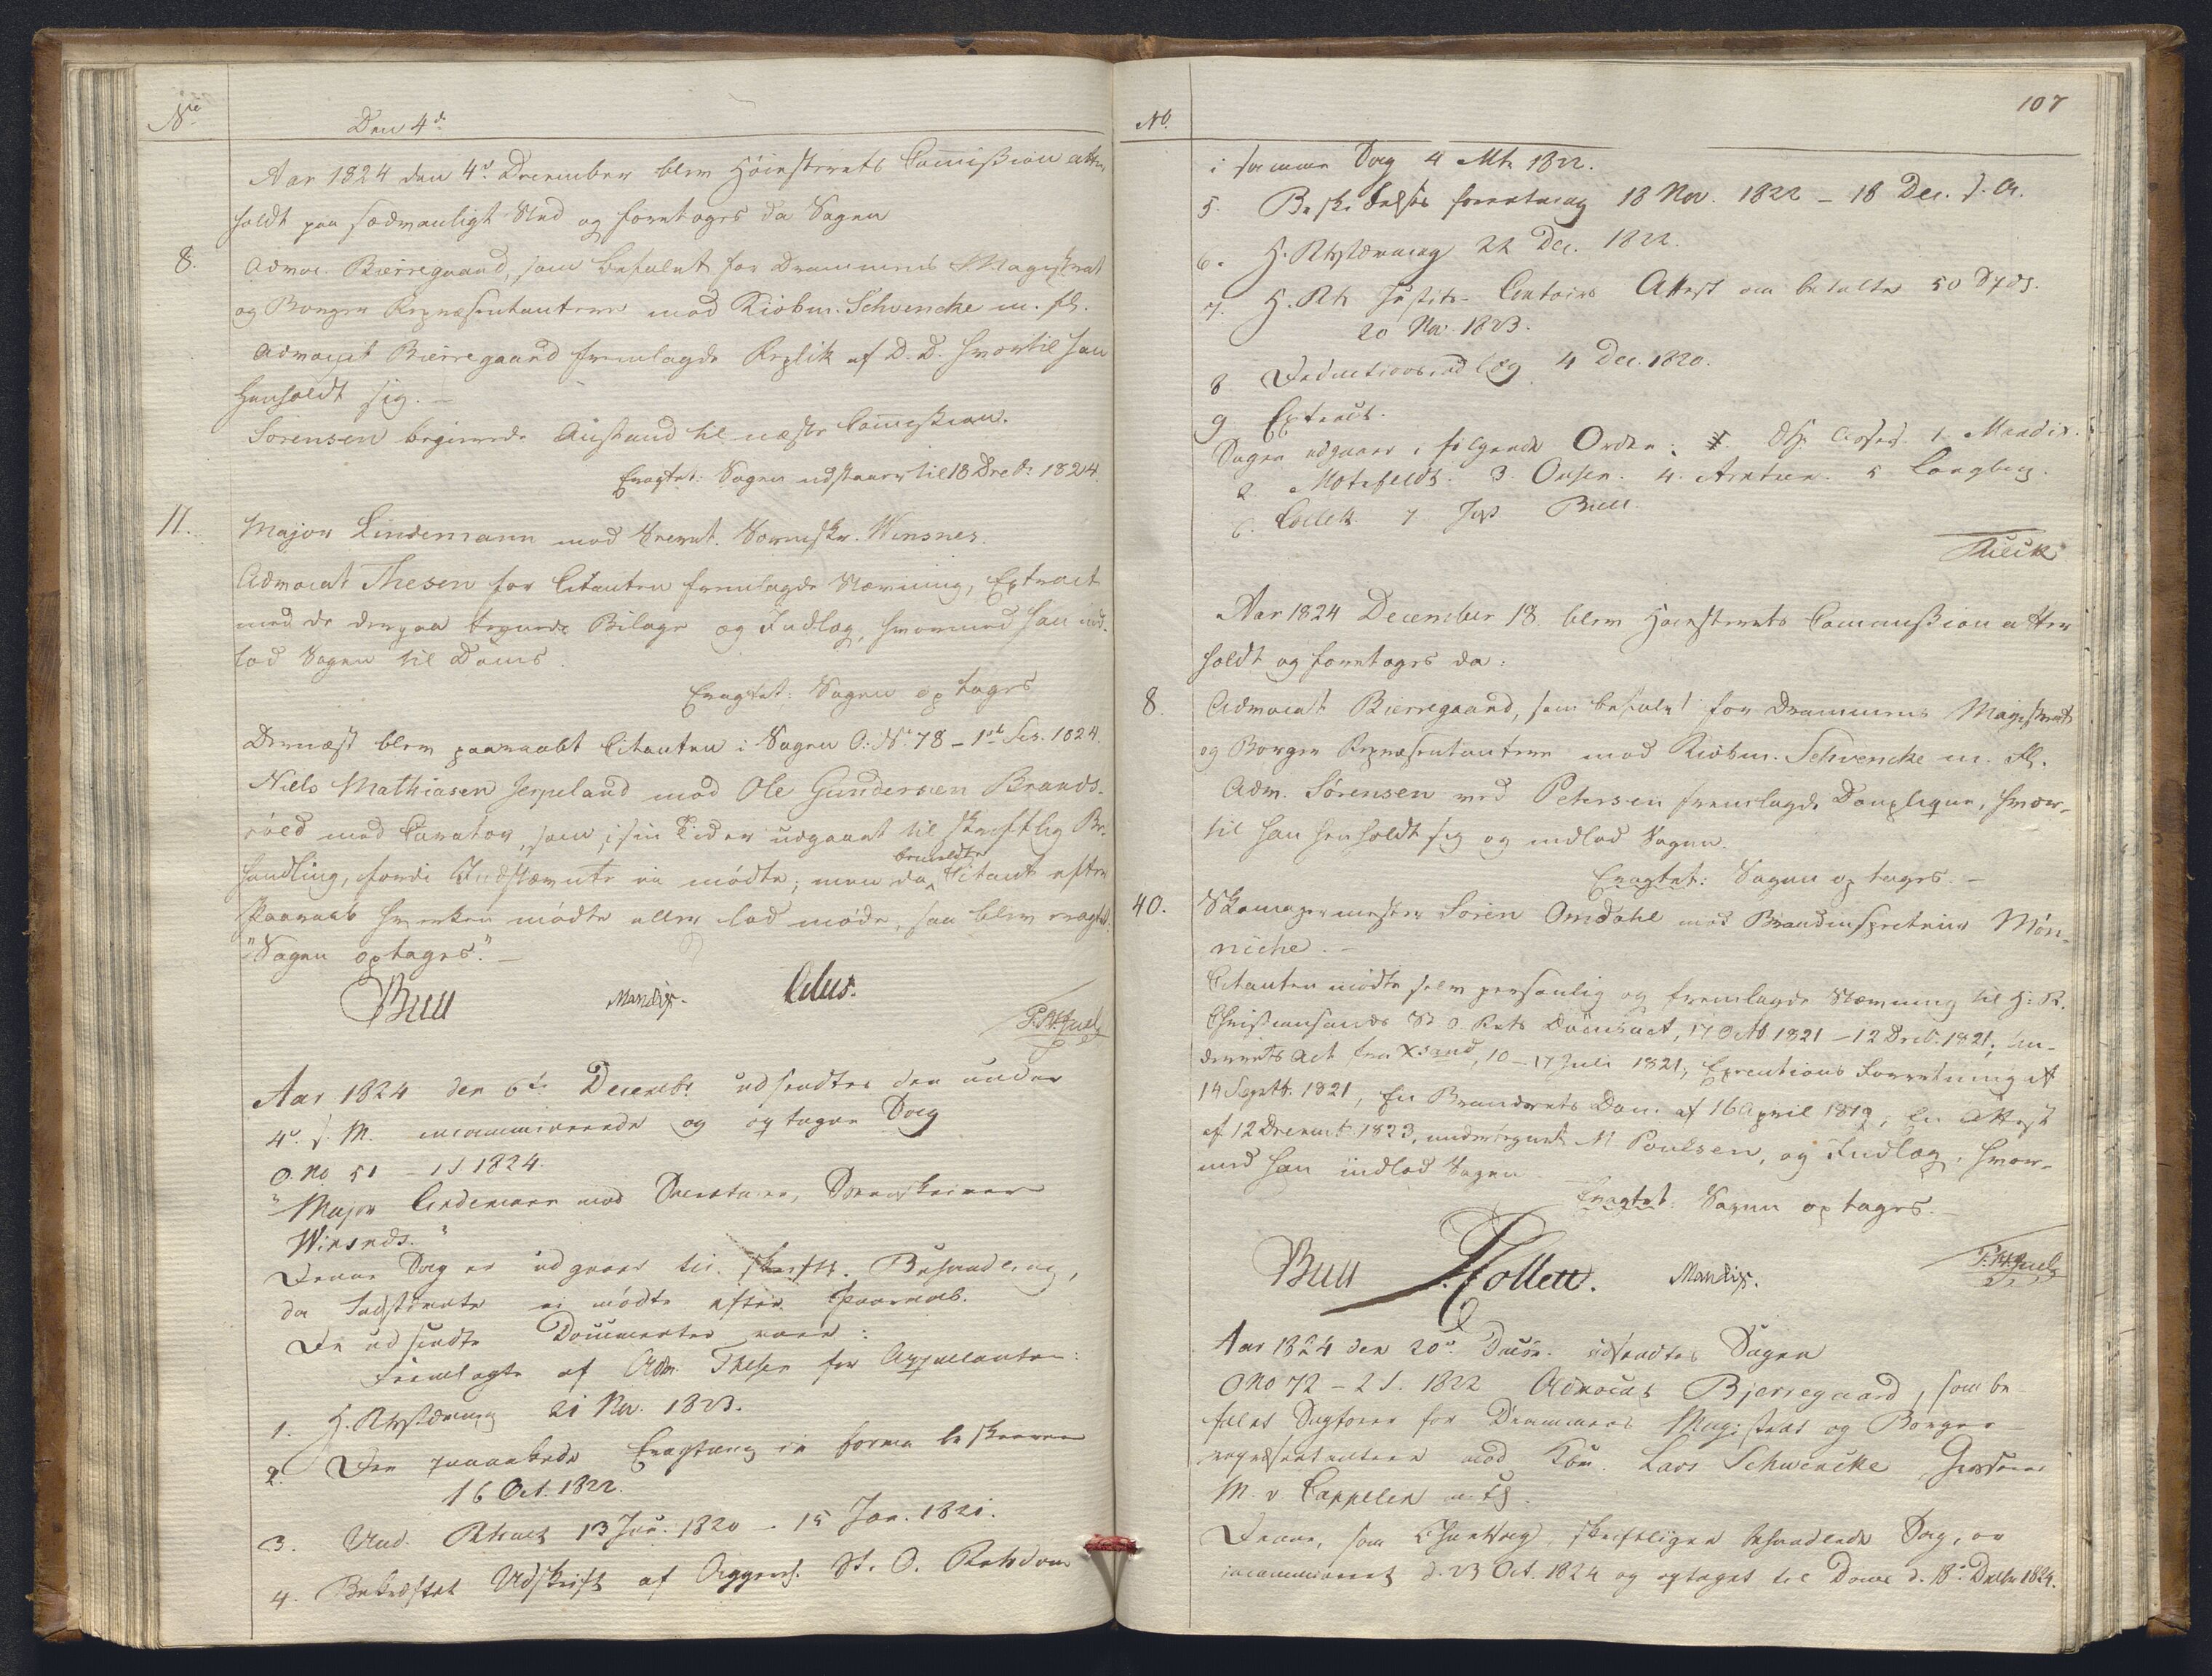 No
Den 4de
Aar 1824 den 4de December blev Höiesterets Commission atter
holdt paa sædvanligt Sted og foretoges da Sagen
8. Advoc. Bierregaard, som befalet for Drammens Magistrat
og Borger Repræsentantere mod Kiöbm. Schvencke m. fl.
Advocat Bierregaard fremlagde Replik af D. D. hvortil han
henholdt sig. –
Sörensen begierede Anstand til næste Commission.
Eragtet: Sagen udstaaer til 18 Decbr 1824.
11. Major Lindemann mod Secret. Sorenskr. Winsnes.
Advocat Thesen for Citanten fremlagde Stævning, Extract
med de derpaa tegnede Bilage og Indlæg, hvormed han ind-
lod Sagen til Doms.
Eragtet: Sagen optages
Dernæst blev paaraabt Citanten i Sagen O: No 78 – 1ste Ses. 1824.
Niels Mathiasen Jerpeland mod Ole Gundersen Brands-
röed med Curator, som i sin Tid er udgaaet til skriftlig Be-
handling, fordi Indstævnte ei mödte; men da bemeldte Citant efter
Paaraab hverken mödte eller lod möde, saa blev eragtet:
"Sagen optages". –
Bull Mandix. Aars.
P. M. Juel
Aar 1824 den 6te Decembr udsendtes den under
4de d. M. incaminerede og optagne Sag
O. No 51 – 1 S 1824.
"Major Lindemann mod Secretaire, Sorenskriver
Winsnes."
Denne Sag er udgaaet til skriftl. Behandling,
da Indstevnte ei mödte efter Paaraab.
De udsendte Documenter vare:
Fremlagte af Adv. Thesen for Appellanten:
1. H. Rtsstævning 21 Nov. 1823.
2. Den paaankede Eragtning in forma beskreven
16 Oct. 1822.
3. Und. Retsact 13 Jun. 1820 – 15 Jan. 1821.
4. Bekræftet Udskrift af Aggersh. St. O. Retsdom
No.
107
i samme Sag 4 Mts 1822.
5. Beskikkelses forretning 18 Nov. 1822 – 18 Dec. s. A.
6. H. Rtsstævning 22 Dec. 1822.
7. H. Rts Justits- Contoirs Attest om betalte 50 Spds.
20 Nov. 1823.
8 Deductionsindlæg 4 Dec. 1820.
9 Extract.
Sagen udgaaer i fölgende Orden: 1. Mandix.
2 Motzfeldt. 3. Omsen. 4. Arntzen. 5 Langberg.
6. Collett. 7 Just. Bull
Juel
Aar 1824 December 18. blev Höiesterets Commission atter
holdt og foretoges da:
8. Advocat Bierregaard, som befalet for Drammens Magistrat
og Borger Repræsentantere mod Kiöbm. Schvencke m. fl.
Adv. Sörensen ved Petersen fremlagde Douplique, hvor-
til han henholdt sig og indlod Sagen.
Eragtet: Sagen optages. –
40. Skomagermester Sören Omdahl mod Brandinspecteur Mön-
niche. –
Citanten mödte selv personlig og fremlagde Stævning til H: R.
Christiansands St. O. Rets Domsact, 17 Octb 1821 – 12 Decb. 1821; Un-
derrets Act fra Xsand, 10 – 17 Juli 1821; Executions Forretning af
14 Septb. 1821, En Brandrets Dom af 16 April 1819; En Attest
af 12 Decemb. 1823, undertegnet M Poulsen, og Indlæg, hvor-
med han indlod Sagen
Eragtet: Sagen optages. –
Bull J. Collett. Mandix.
P. M. Juel
Aar 1824 den 20de Decbr. udsendtes Sagen
O No 72 – 2 S. 1822 Advocat Bjerregaard, som be-
falet Sagförer for Drammens Magistrat og Borger-
repræsentantere mod Kbm. Lars Schwencke,
M. v. Cappelen m. fl.
Denne, som skriftligen behandlede Sag, er
incamineret d. 23 Oct. 1824 og optaget til Doms d. 18de Decbr 1824.